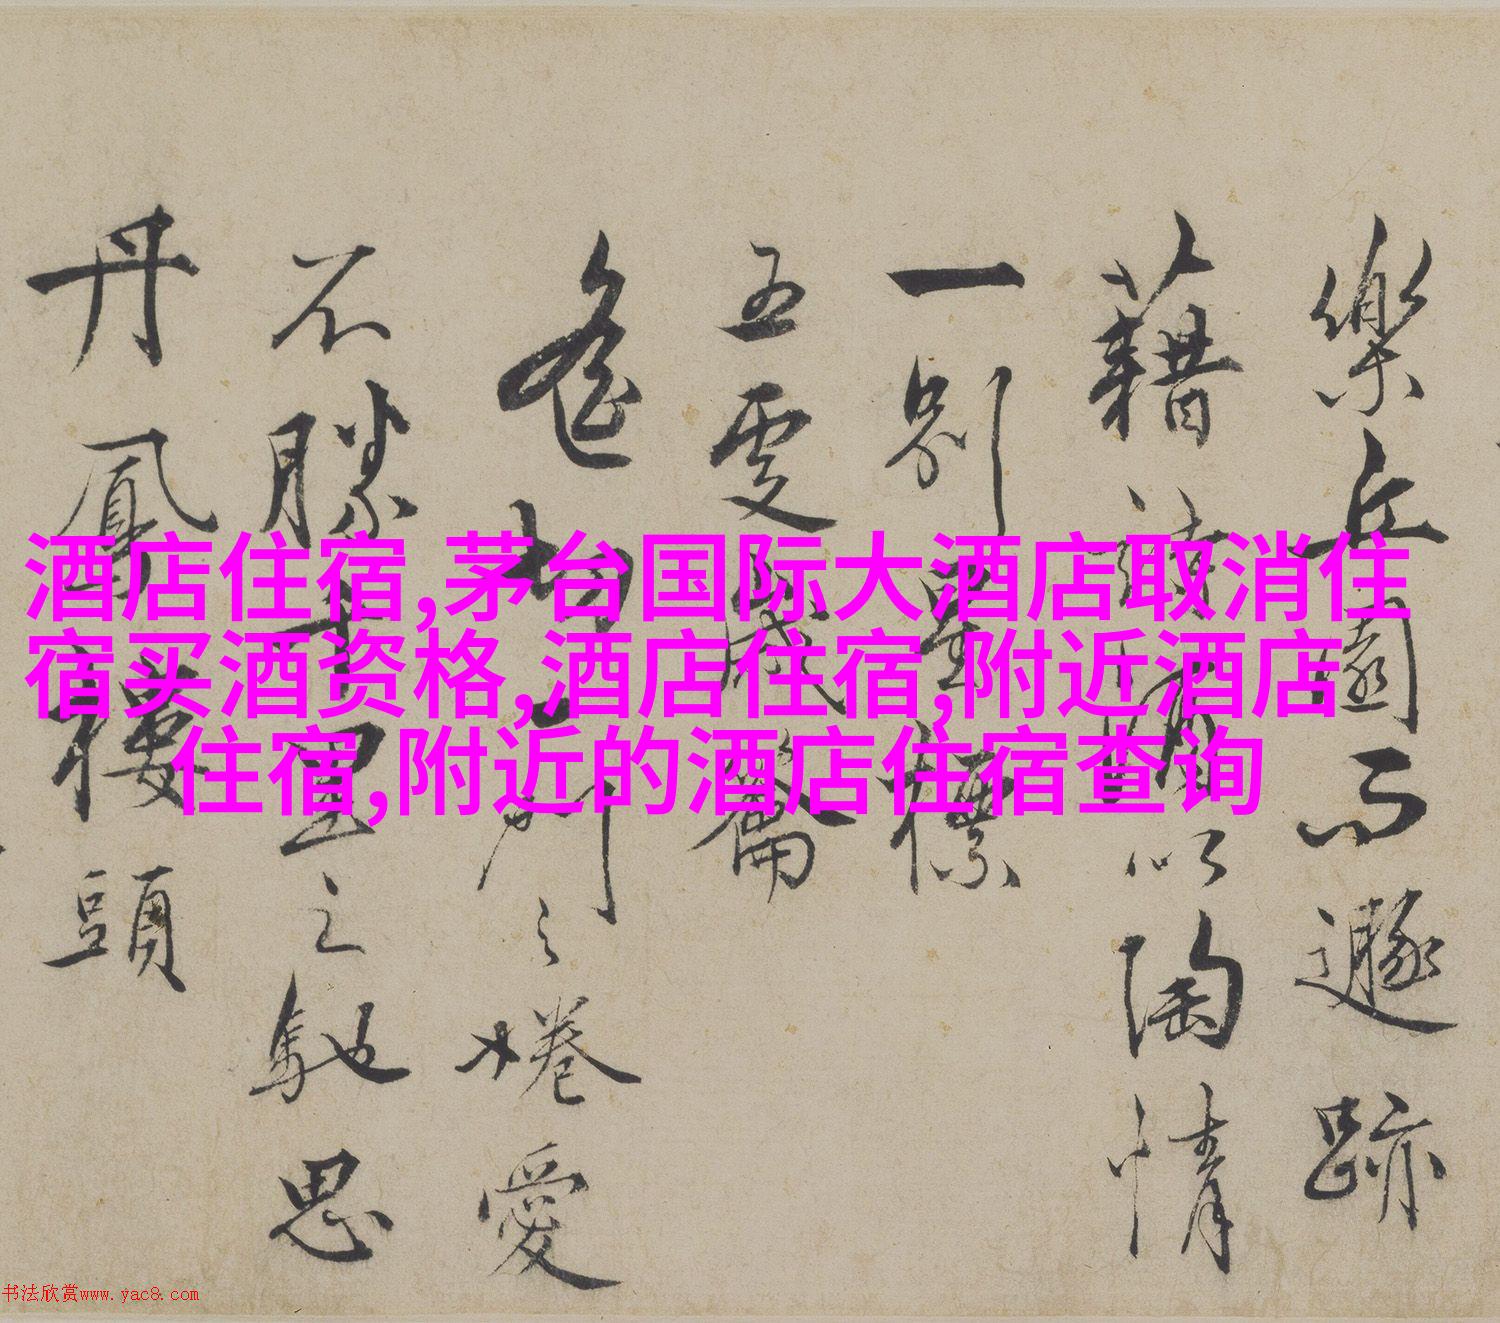 酒店住宿,茅台国际大酒店取消住
宿买酒资格,酒店住宿,附近酒店
住宿,附近的酒店住宿查询
樂丘園而遯跡
藉詩酒以陶情
一別標
五更歲籥
之婘愛
不勝千里之馳思
丹鳳樓頭
书法欣赏www.yac8.com